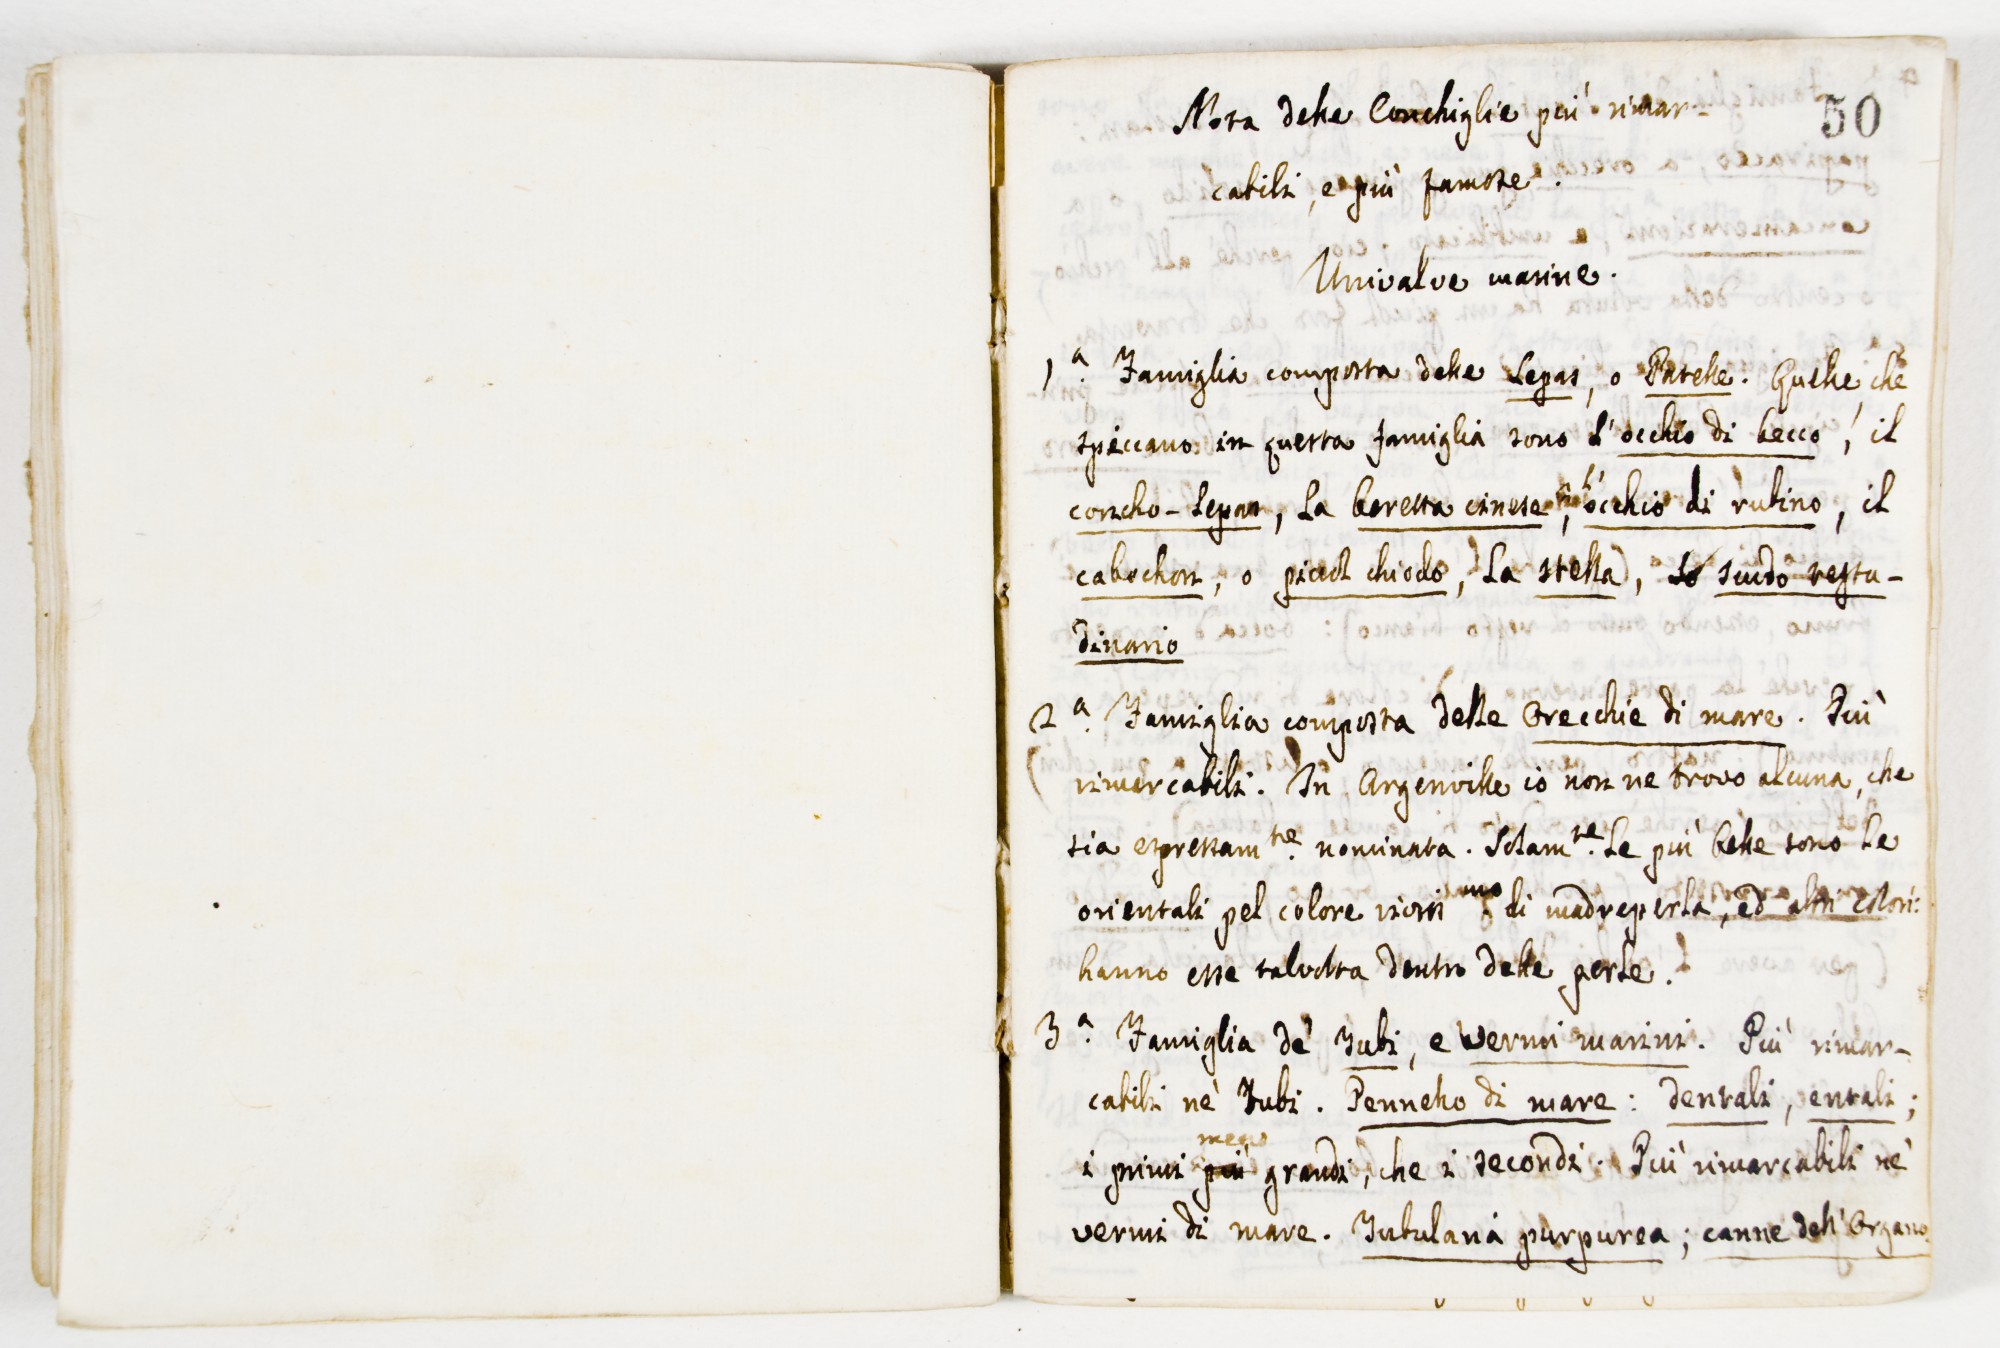 50
Nota delle Conchiglie più rimar-
cabili, e più famose.
Univalve marine.
1.a Famiglia composta delle Lepas, o Patelle. Quelle che
spiccano in questa famiglia sono l'occhio di becco, il
concho-Lepas, la beretta cinese, l'occhio di rubino, il
cabochon, o picciol chiodo, la stella, lo scudo testu-
dinario
2.a Famiglia composta delle Orecchie di mare. Più
rimarcabili. In Argenville io non ne trovo alcuna, che
sia espressam.te nominata. Solam.te le più belle sono le
orientali pel colore di madreperla, ed altri colori:
hanno esse talvolta dentro delle perle.
3.a Famiglia de' Tubi, e vermi marini. Più rimar-
cabili ne' Tubi. Pennello di mare: dentali, entali;
meno
i primi più grandi, che i secondi. Più rimarcabili ne'
vermi di mare. Tubularia purpurea; canne dell'Organo